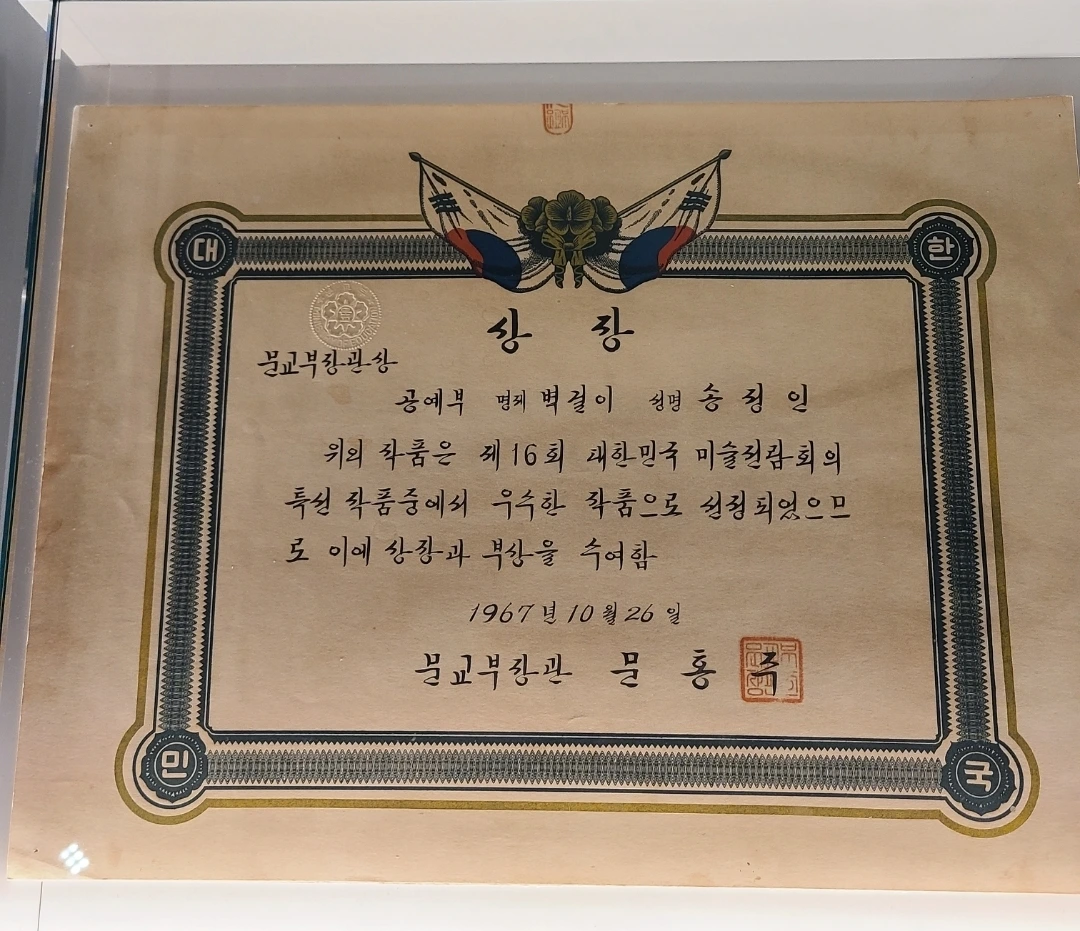 대 한
상 장
문교부장관상
공예부 명제 벽걸이 성명 송정인
위의 작품은 제16회 대한민국 미술전람회의
특선 작품중에서 우수한 작품으로 선정되었으므
로 이에 상장과 부상을 수여함
1967년 10월 26일
문교부장관 문홍주
민 국